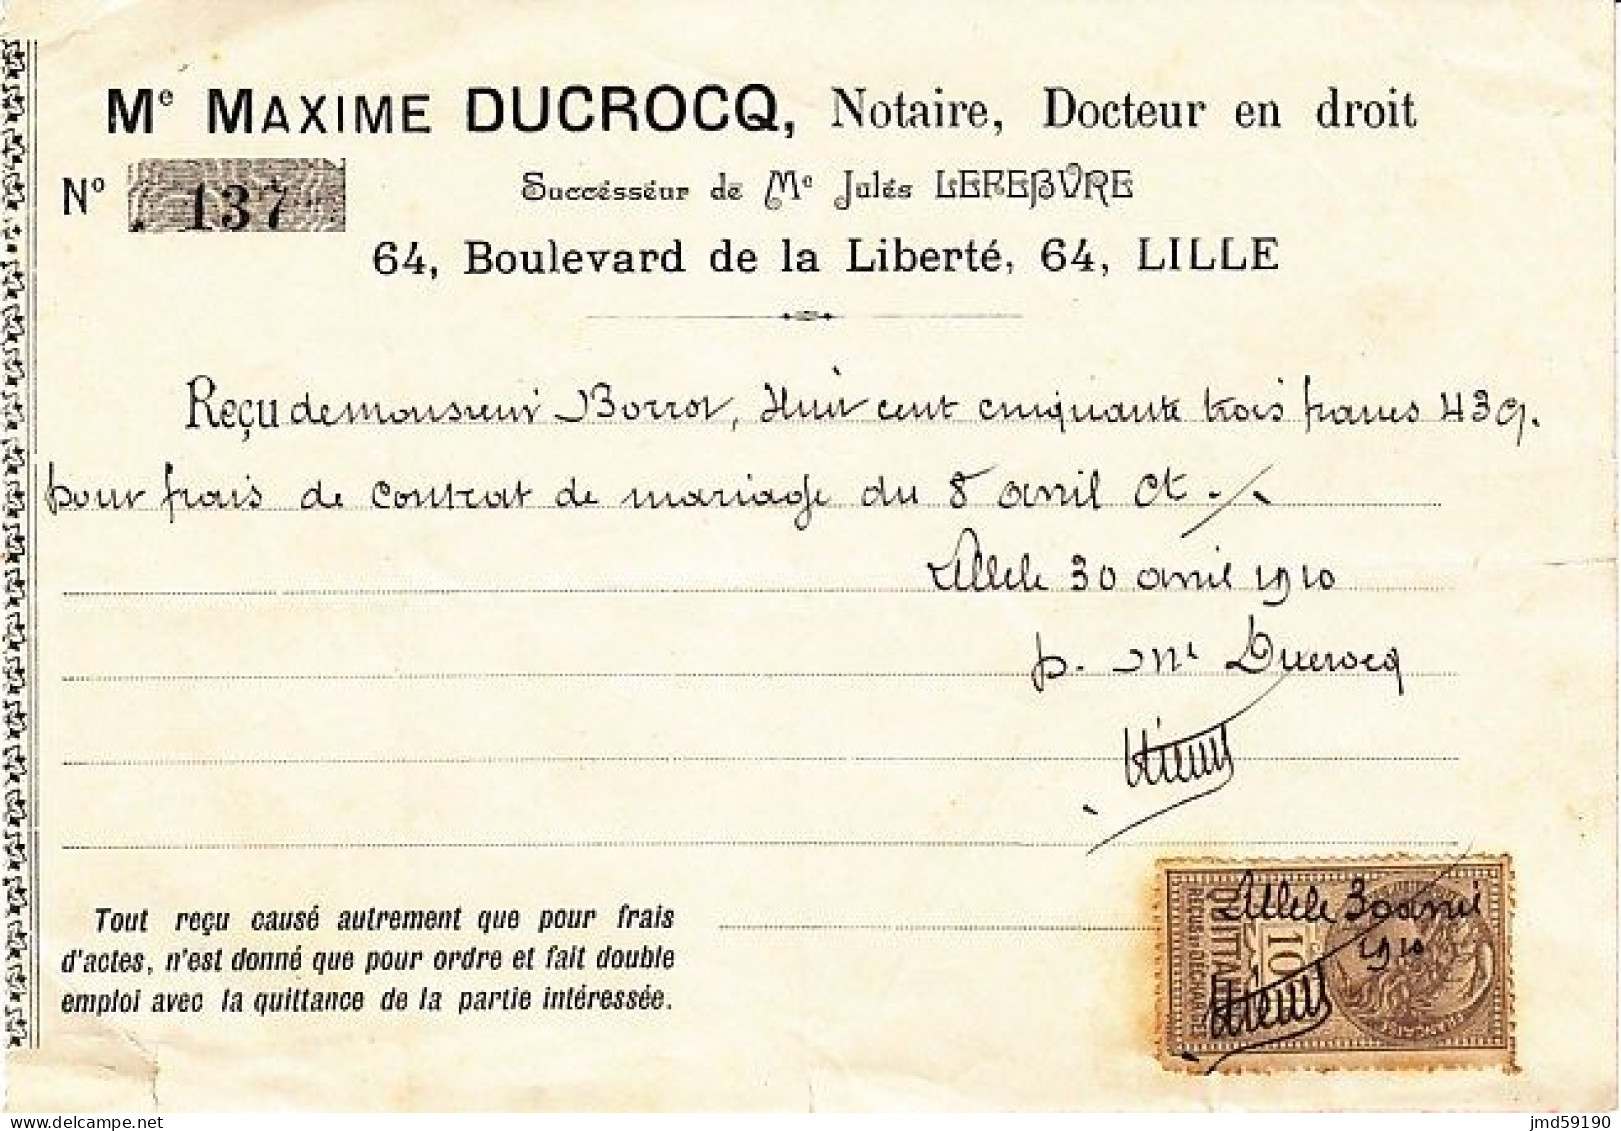 Me MAXIME DUCROCQ, Notaire, Docteur en droit
No 137
Succésséur dé Me Julés LEFEBVRE
64, Boulevard de la Liberté, 64, LILLE
Reçu de monsieur Borrot, Huit cent cinquante trois francs 43 c.
pour frais de contrat de mariage du 8 avril ct.
Lille 30 avril 1910
p. Me Ducrocq
Tout reçu causé autrement que pour frais
d'actes, n'est donné que pour ordre et fait double
emploi avec la quittance de la partie intéressée.
Lille 30 avril
1910
QUITTANCES
REÇUS ET DÉCHARGES
10
jmd59190